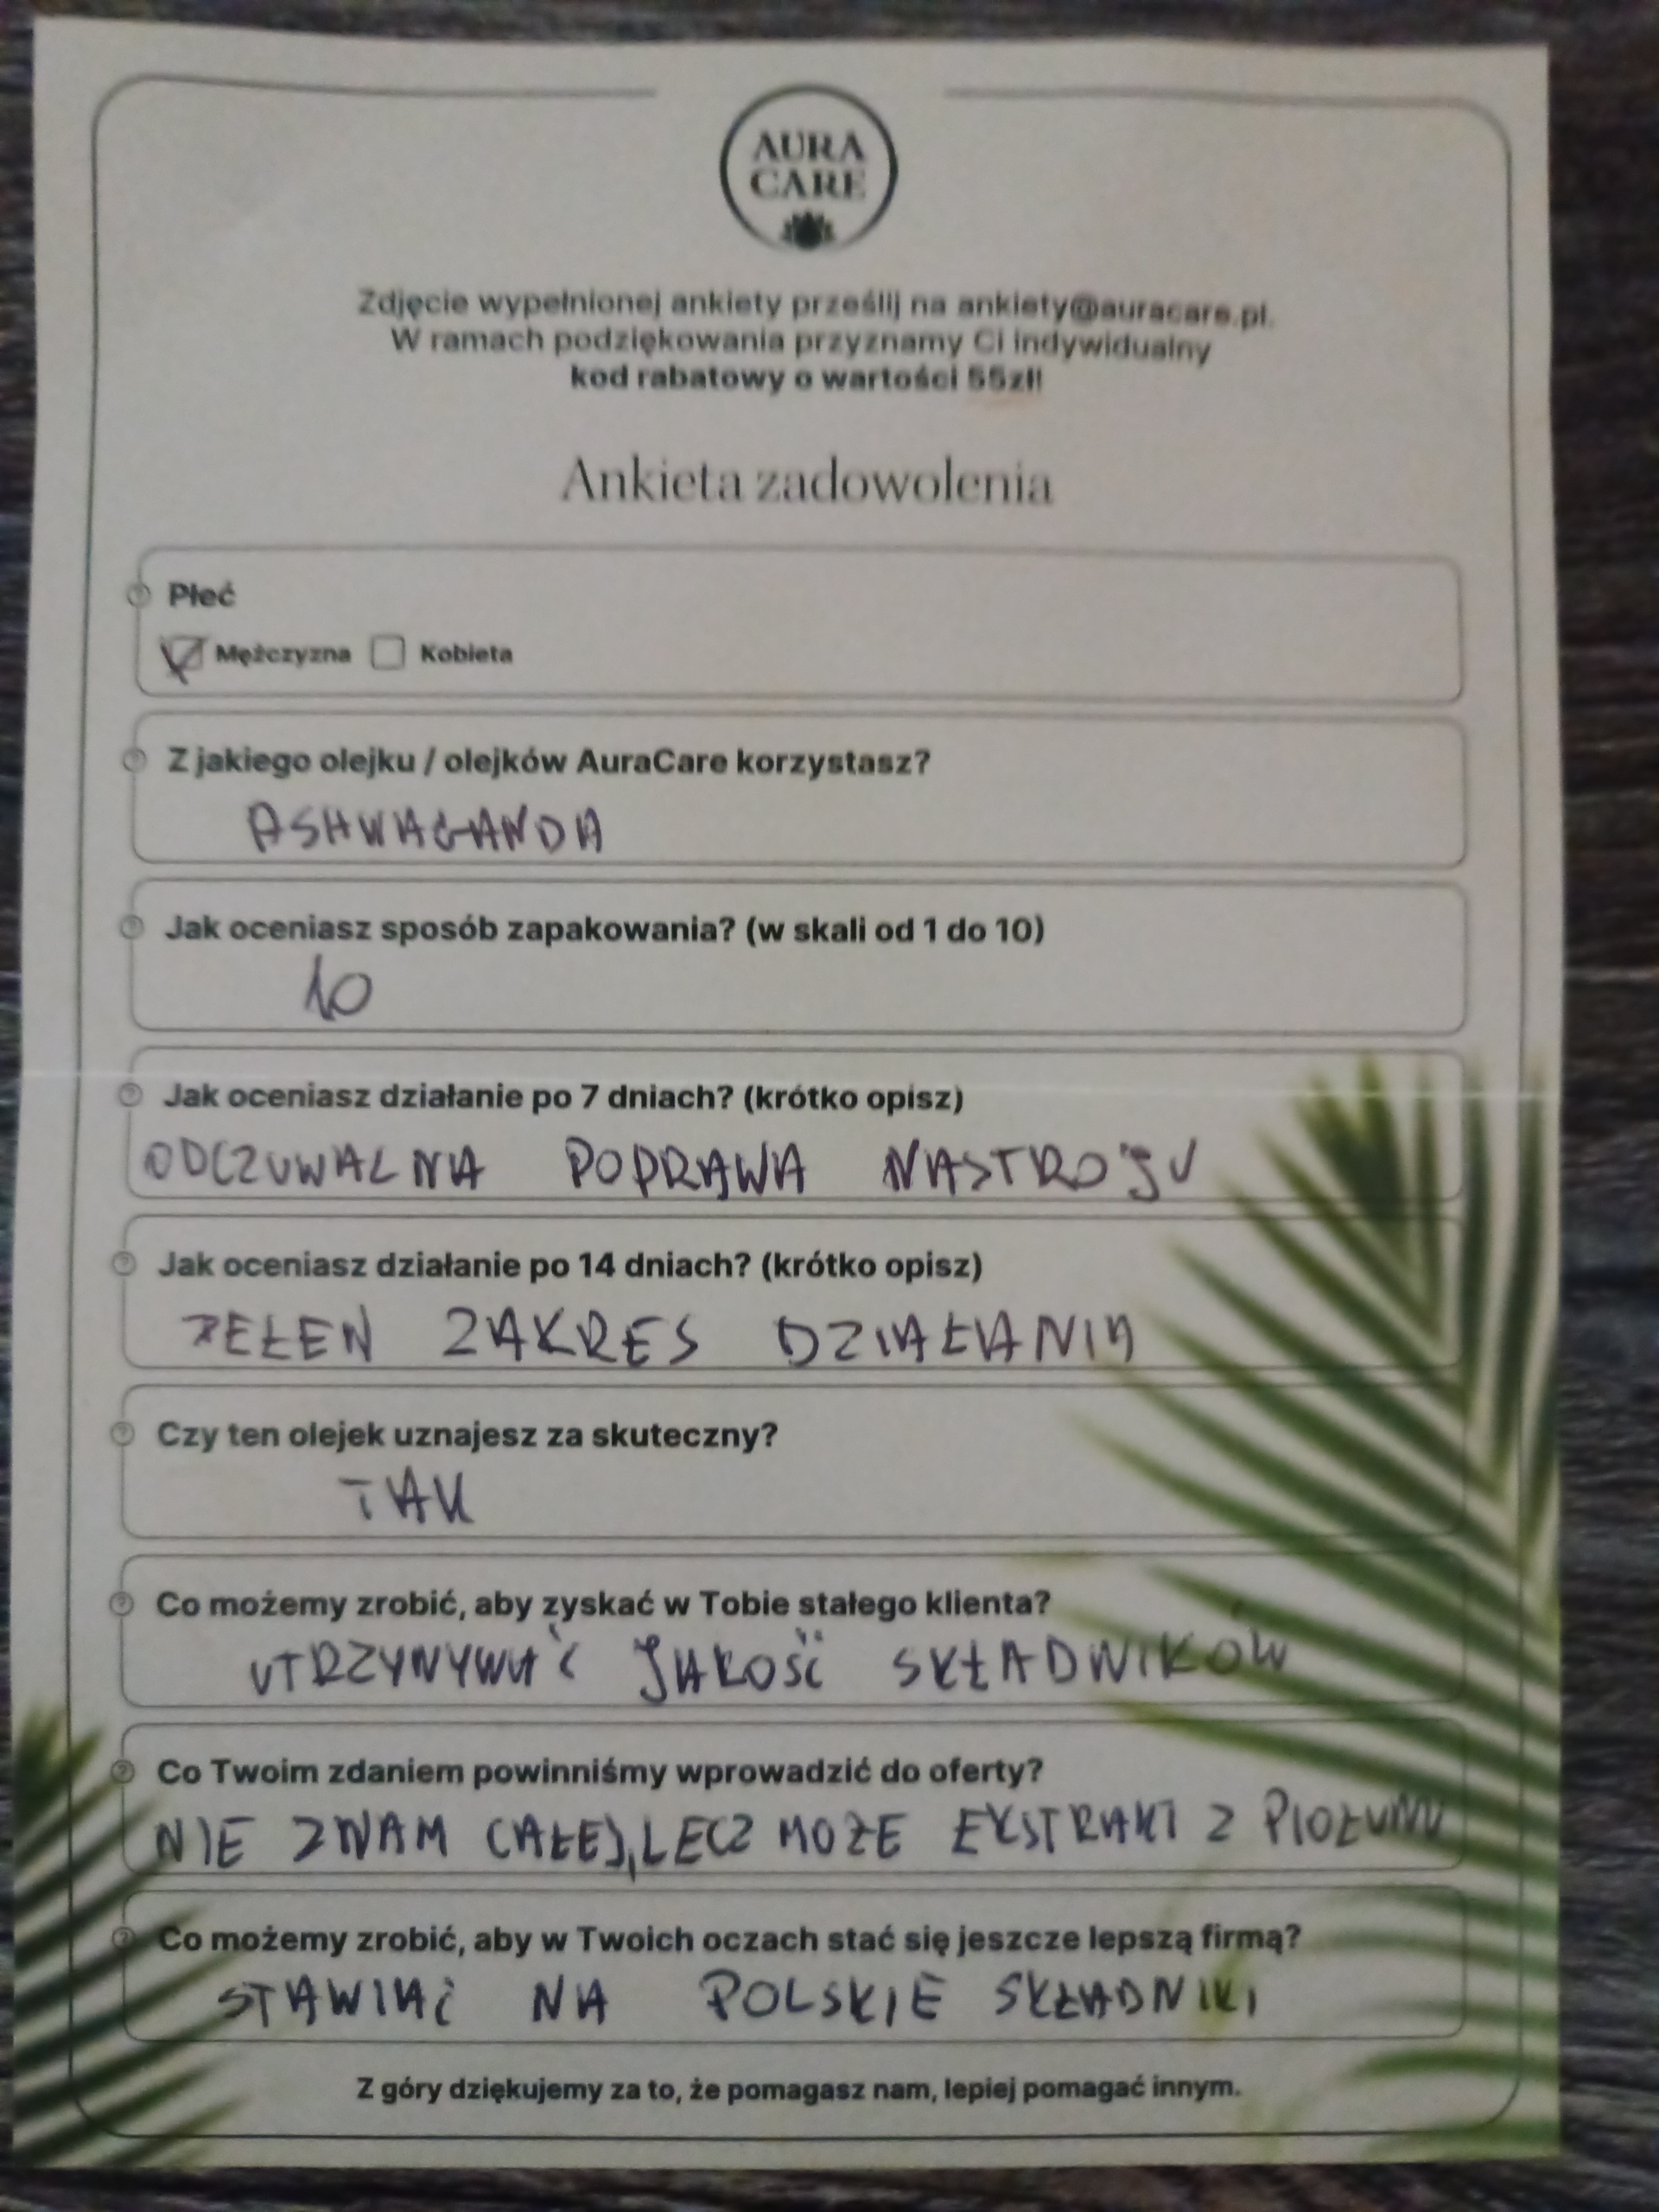 AURA
CARE
Zdjęcie wypełnionej ankiety prześlij na ankiety@auracare.pl.
W ramach podziękowania przyznamy Ci indywidualny
kod rabatowy o wartości 55zł!
Ankieta zadowolenia
Płeć
Mężczyzna Kobieta
Z jakiego olejku / olejków AuraCare korzystasz?
ASHWAGANDA
Jak oceniasz sposób zapakowania? (w skali od 1 do 10)
10
Jak oceniasz działanie po 7 dniach? (krótko opisz)
ODCZUWALNA POPRAWA NASTROJU
Jak oceniasz działanie po 14 dniach? (krótko opisz)
ZAKRES DZIAŁANIA
Czy ten olejek uznajesz za skuteczny?
TAK
Co możemy zrobić, aby zyskać w Tobie stałego klienta?
UTRZYNYWAĆ JAKOŚĆ SKŁADNIKÓW
Co Twoim zdaniem powinniśmy wprowadzić do oferty?
NIE ZNAM CAŁEJ, LECZ MOŻE EKSTRAKT Z PIOŁUNU
Co możemy zrobić, aby w Twoich oczach stać się jeszcze lepszą firmą?
STAWIAĆ NA POLSKIE SKŁADNIKI
Z góry dziękujemy za to, że pomagasz nam, lepiej pomagać innym.